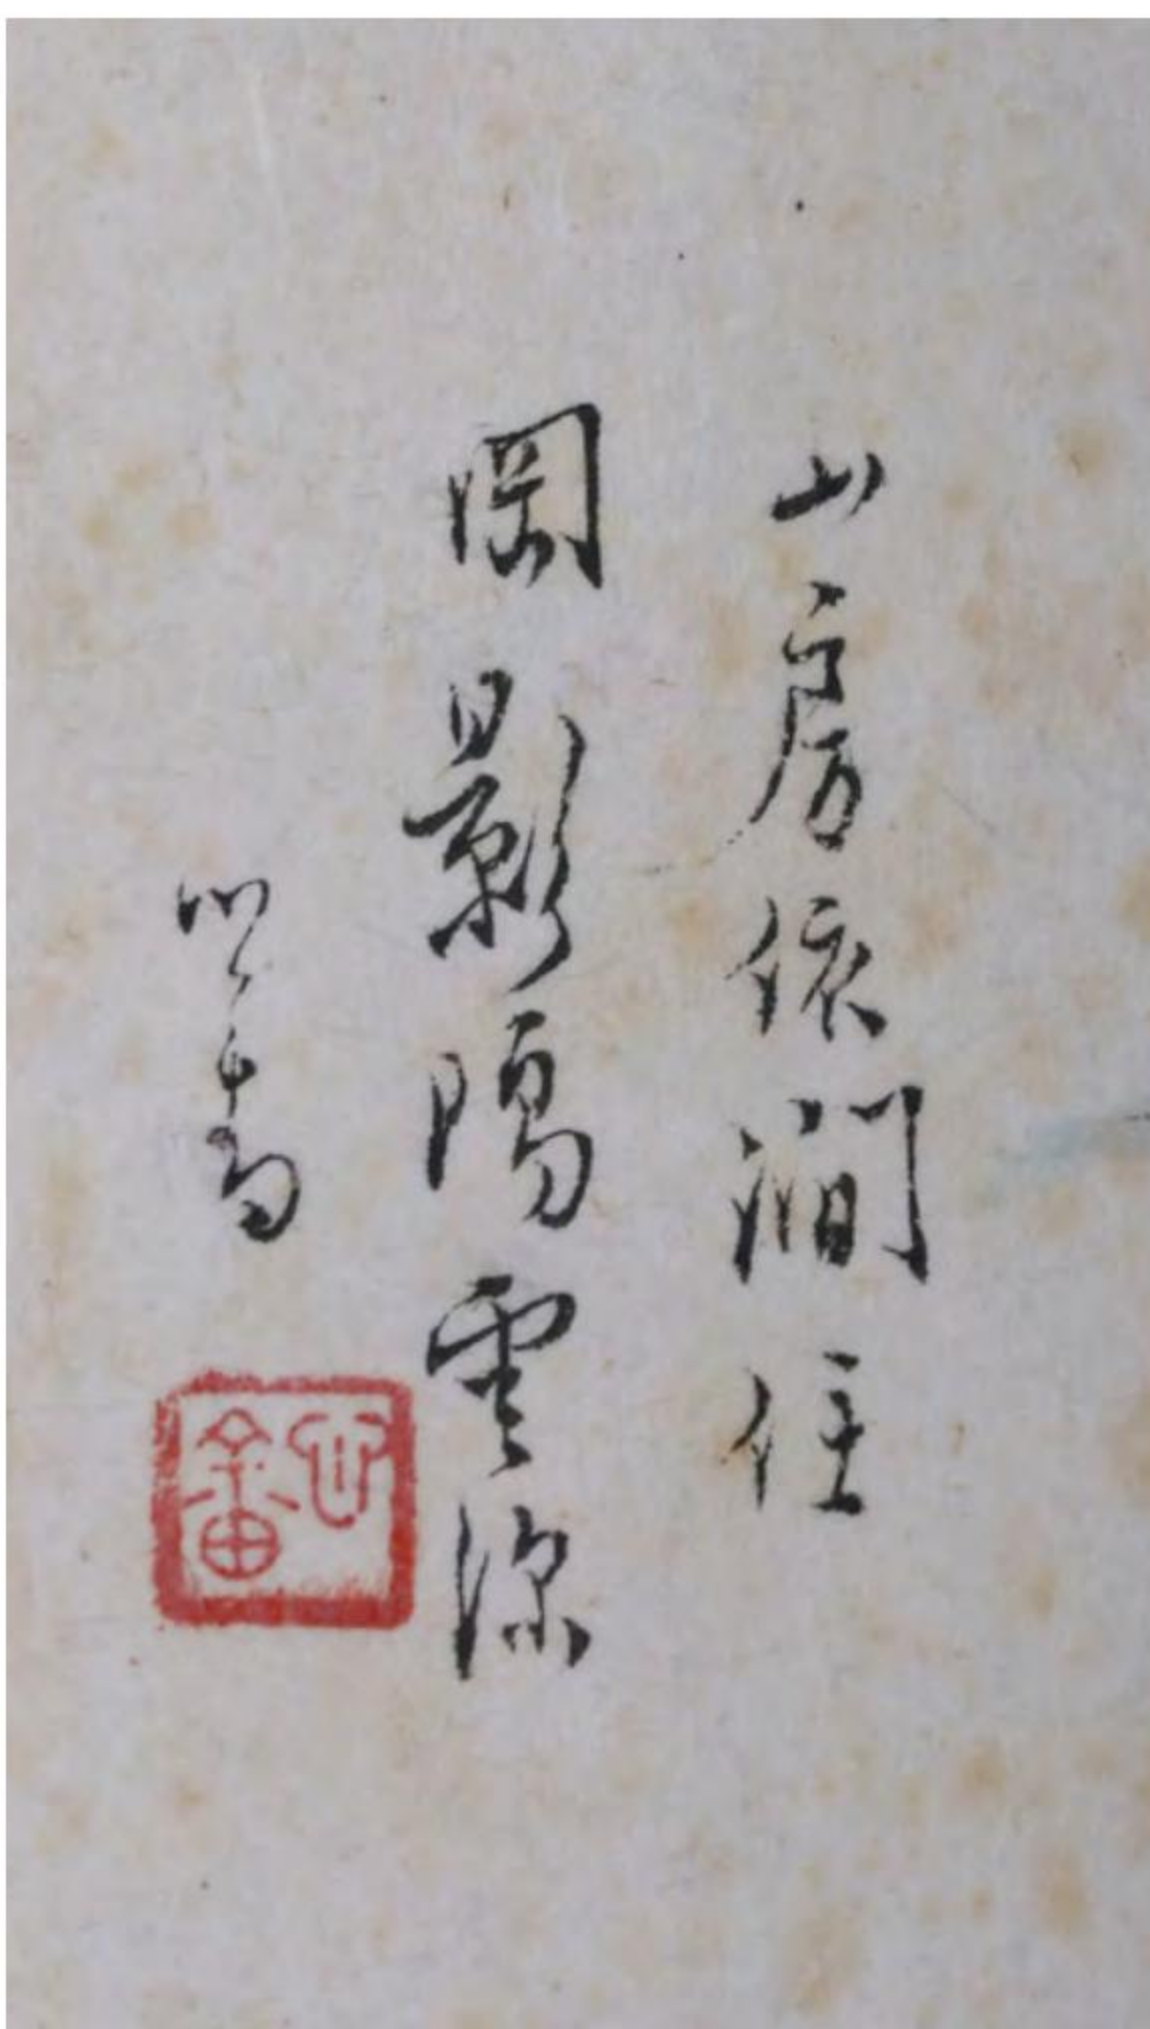 山房依澗住
岡影隔雲深
心畬
心畬